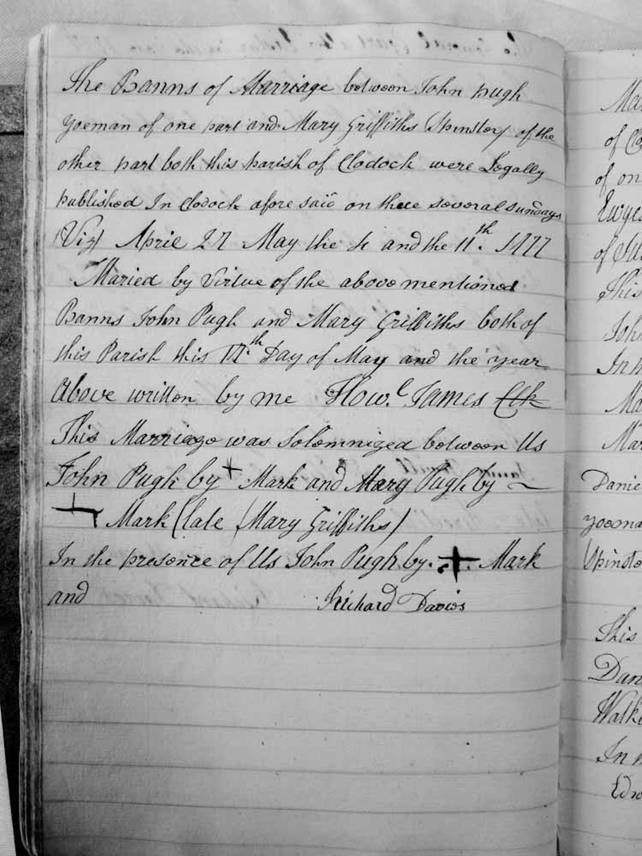 The Banns of Marriage between John pugh
yoeman of one part and Mary Griffiths (Spinster) of the
other part both this parish of Clodock were Legally
published In Clodock afore said on three several sundays
(Viz) April 27 May the 4 and the 11th. 1777
Maried by Virtue of the above mentioned
Banns John Pugh and Mary Griffiths both of
this Parish this 17th Day of May and the year
Above written by me How.l James Clk
This Marriage was Solemnized between Us
John Pugh by + Mark and Mary Pugh by ~
+ Mark (late (Mary Griffiths)
In the presence of Us John Pugh by. + . Mark
and Richard Davies
Ma
of
of on
Ewyc
of
This
John
In
Ma
Mar
Danie
yoema
Spinste
This
Dan
Walk
In
Edw